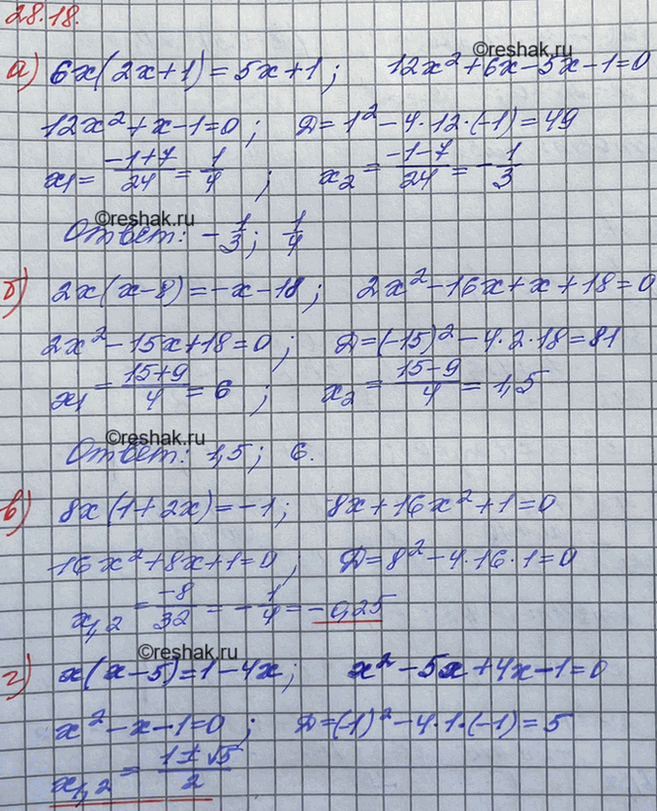 28.18.
©reshak.ru
а) 6x(2x+1)=5x+1; 12x²+6x-5x-1=0
12x²+x-1=0; D=1²-4·12·(-1)=49
x₁=(-1+7)/24=1/4; x₂=(-1-7)/24=-1/3
©reshak.ru
Ответ: -1/3; 1/4
б) 2x(x-8)=-x-18; 2x²-16x+x+18=0
2x²-15x+18=0; D=(-15)²-4·2·18=81
x₁=(15+9)/4=6; x₂=(15-9)/4=1,5
©reshak.ru
Ответ: 1,5; 6.
в) 8x(1+2x)=-1; 8x+16x²+1=0
16x²+8x+1=0; D=8²-4·16·1=0
x₁,₂=-8/32=-1/4=-0,25
©reshak.ru
г) x(x-5)=1-4x; x²-5x+4x-1=0
x²-x-1=0; D=(-1)²-4·1·(-1)=5
x₁,₂=(1±√5)/2